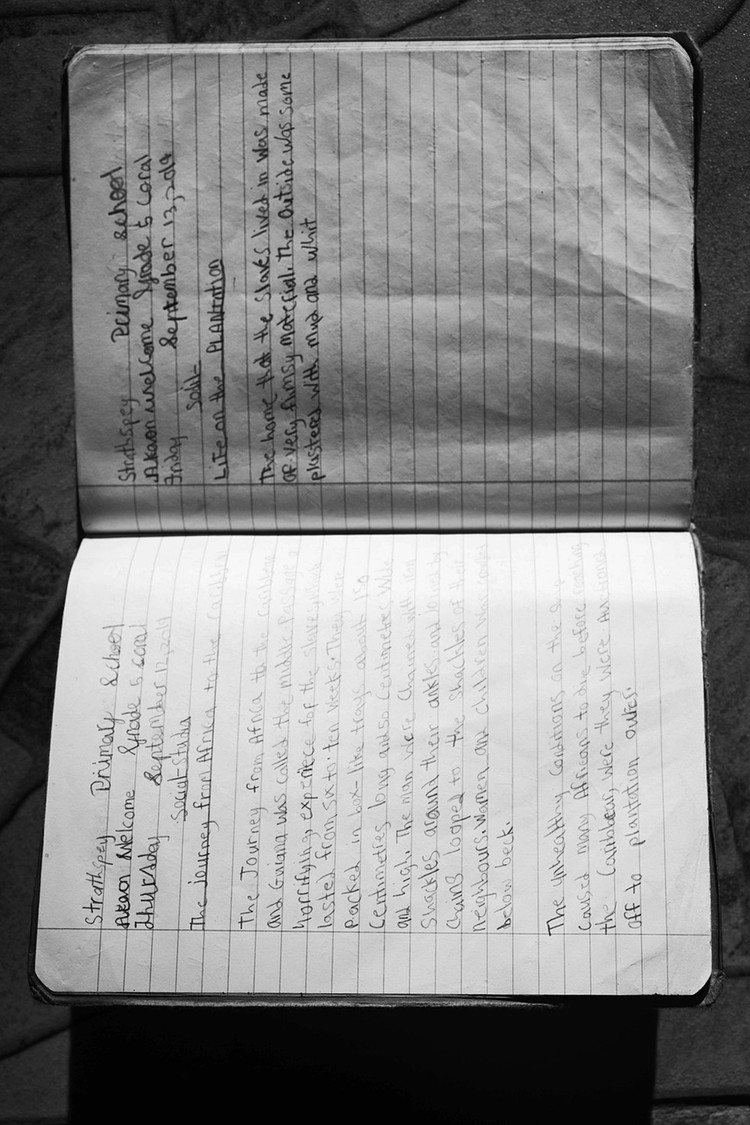 Strathspey Primary School
Akaon Welcome Grade 5 Coral
Thursday September 12, 2019
Social-Studia
The journey from Africa to the Caribben
The Journey from Africa to the
and Guiana was called the middle Passage a
horrifying, exprience for the slaves,
lasted from six to ten weeks. They were
Packed in box-like trays about 150
Centimetres long and 50 Centimetres Wide
and high. The man were Chained with iron
Shackles around their ankles and
Chains looped to the Shackles of their
neighbours. Women and children
below beck.
The unhealthy Conditions on the
Caused many Africans to die before reaching
the Caribbear, were they were
off to plantation owter.
Strathspey Primary School
Akaon welcome Grade 5 Coral
Friday September 13, 2019
Life on the PLANtation
The home that the slaves lived in was made
of very flimsy material. The outside was some
plastered with mud and whit